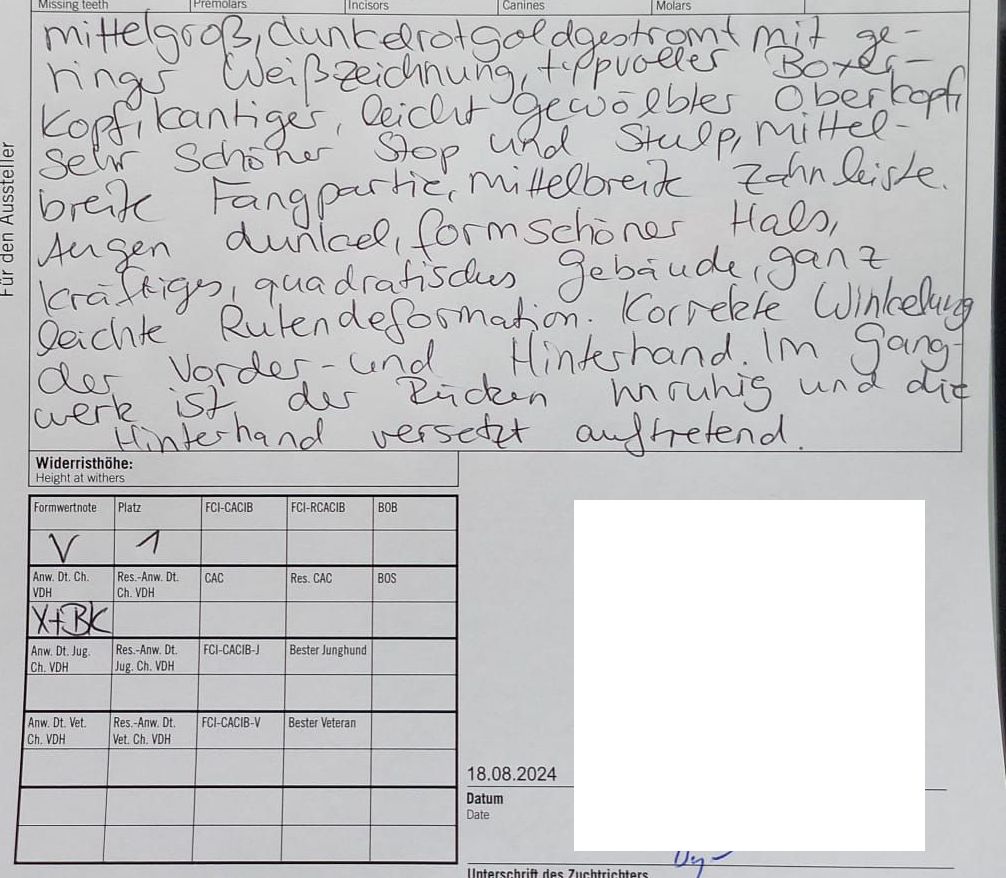 Missing teeth Premolars Incisors Canines Molars
mittelgroß, dunkelrotgoldgestromt mit ge-
ringer Weißzeichnung, typvoller Boxer-
kopf, kantiger, leicht gewölbter Oberkopf,
sehr schöner Stop und Stulp, mittel-
breite Fangpartie, mittelbreite Zahnleiste.
Augen dunkel, formschöner Hals,
kräftiges, quadratisches Gebäude, ganz
leichte Rutendeformation. Korrekte Winkelung
der Vorder- und Hinterhand. Im Gang-
werk ist der Rücken unruhig und die
Hinterhand versetzt auftretend.
Für den Aussteller
Widerristhöhe:
Height at withers
Formwertnote Platz FCI-CACIB FCI-RCACIB BOB
V 1
Anw. Dt. Ch. VDH Res.-Anw. Dt. Ch. VDH CAC Res. CAC BOS
X+BK
Anw. Dt. Jug. Ch. VDH Res.-Anw. Dt. Jug. Ch. VDH FCI-CACIB-J Bester Junghund
Anw. Dt. Vet. Ch. VDH Res.-Anw. Dt. Vet. Ch. VDH FCI-CACIB-V Bester Veteran
18.08.2024
Datum
Date
Unterschrift des Zuchtrichters